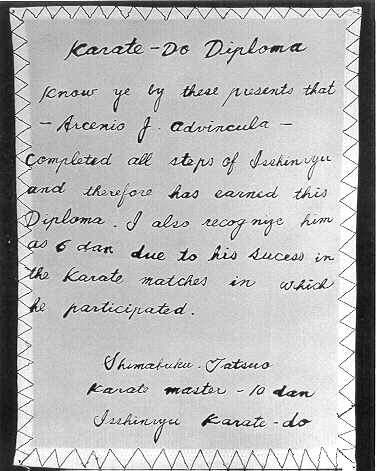 Karate-Do Diploma
Know ye by these presents that
- Arcenio J. Advincula -
Completed all steps of Isshinryu
and therefore has earned this
Diploma. I also recognize him
as 6 dan due to his sucess in
the Karate matches in which
he participated.
Shimabuku. Tatsuo
Karate master - 10 dan
Isshinryu Karate-do